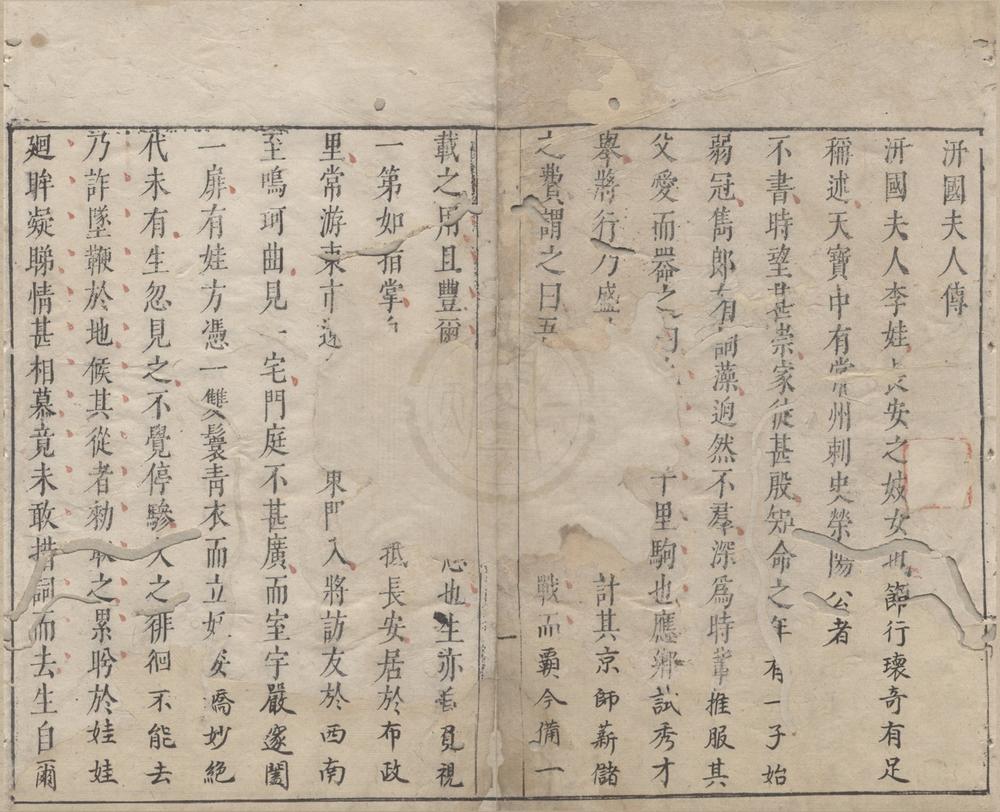 汧國夫人傳
汧國夫人李娃長安之妓女也節行瓌奇有足
稱述天寶中有常州刺史滎陽公者
不書時望甚崇家徒甚殷知命之年有一子始
弱冠雋郎有詞藻迥然不羣深為時輩推服其
父愛而器之曰 千里駒也應鄉試秀才
舉將行乃盛 計其京師薪儲
之費謂之曰五 戰而霸今備一
載之用且豐爾 志也生亦 視
一第如指掌 抵長安居於布政
里常游東市還 東門入將訪友於西南
至鳴珂曲見一宅門庭不甚廣而室宇嚴邃闔
一扉有娃方憑一雙鬟青衣而立妖姿 妙絕
代未有生忽見之不覺停驂久之徘徊不能去
乃詐墜鞭於地候其從者勑取之累盻於娃娃
廻眸凝睇情甚相慕竟未敢措詞而去生自爾